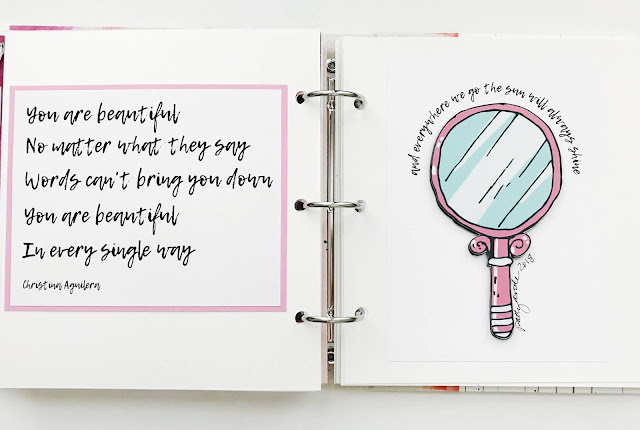 You are beautiful
No matter what they say
Words can't bring you down
You are beautiful
In every single way
Christina Aguilera
and everywhere we go the sun will always shine
2018